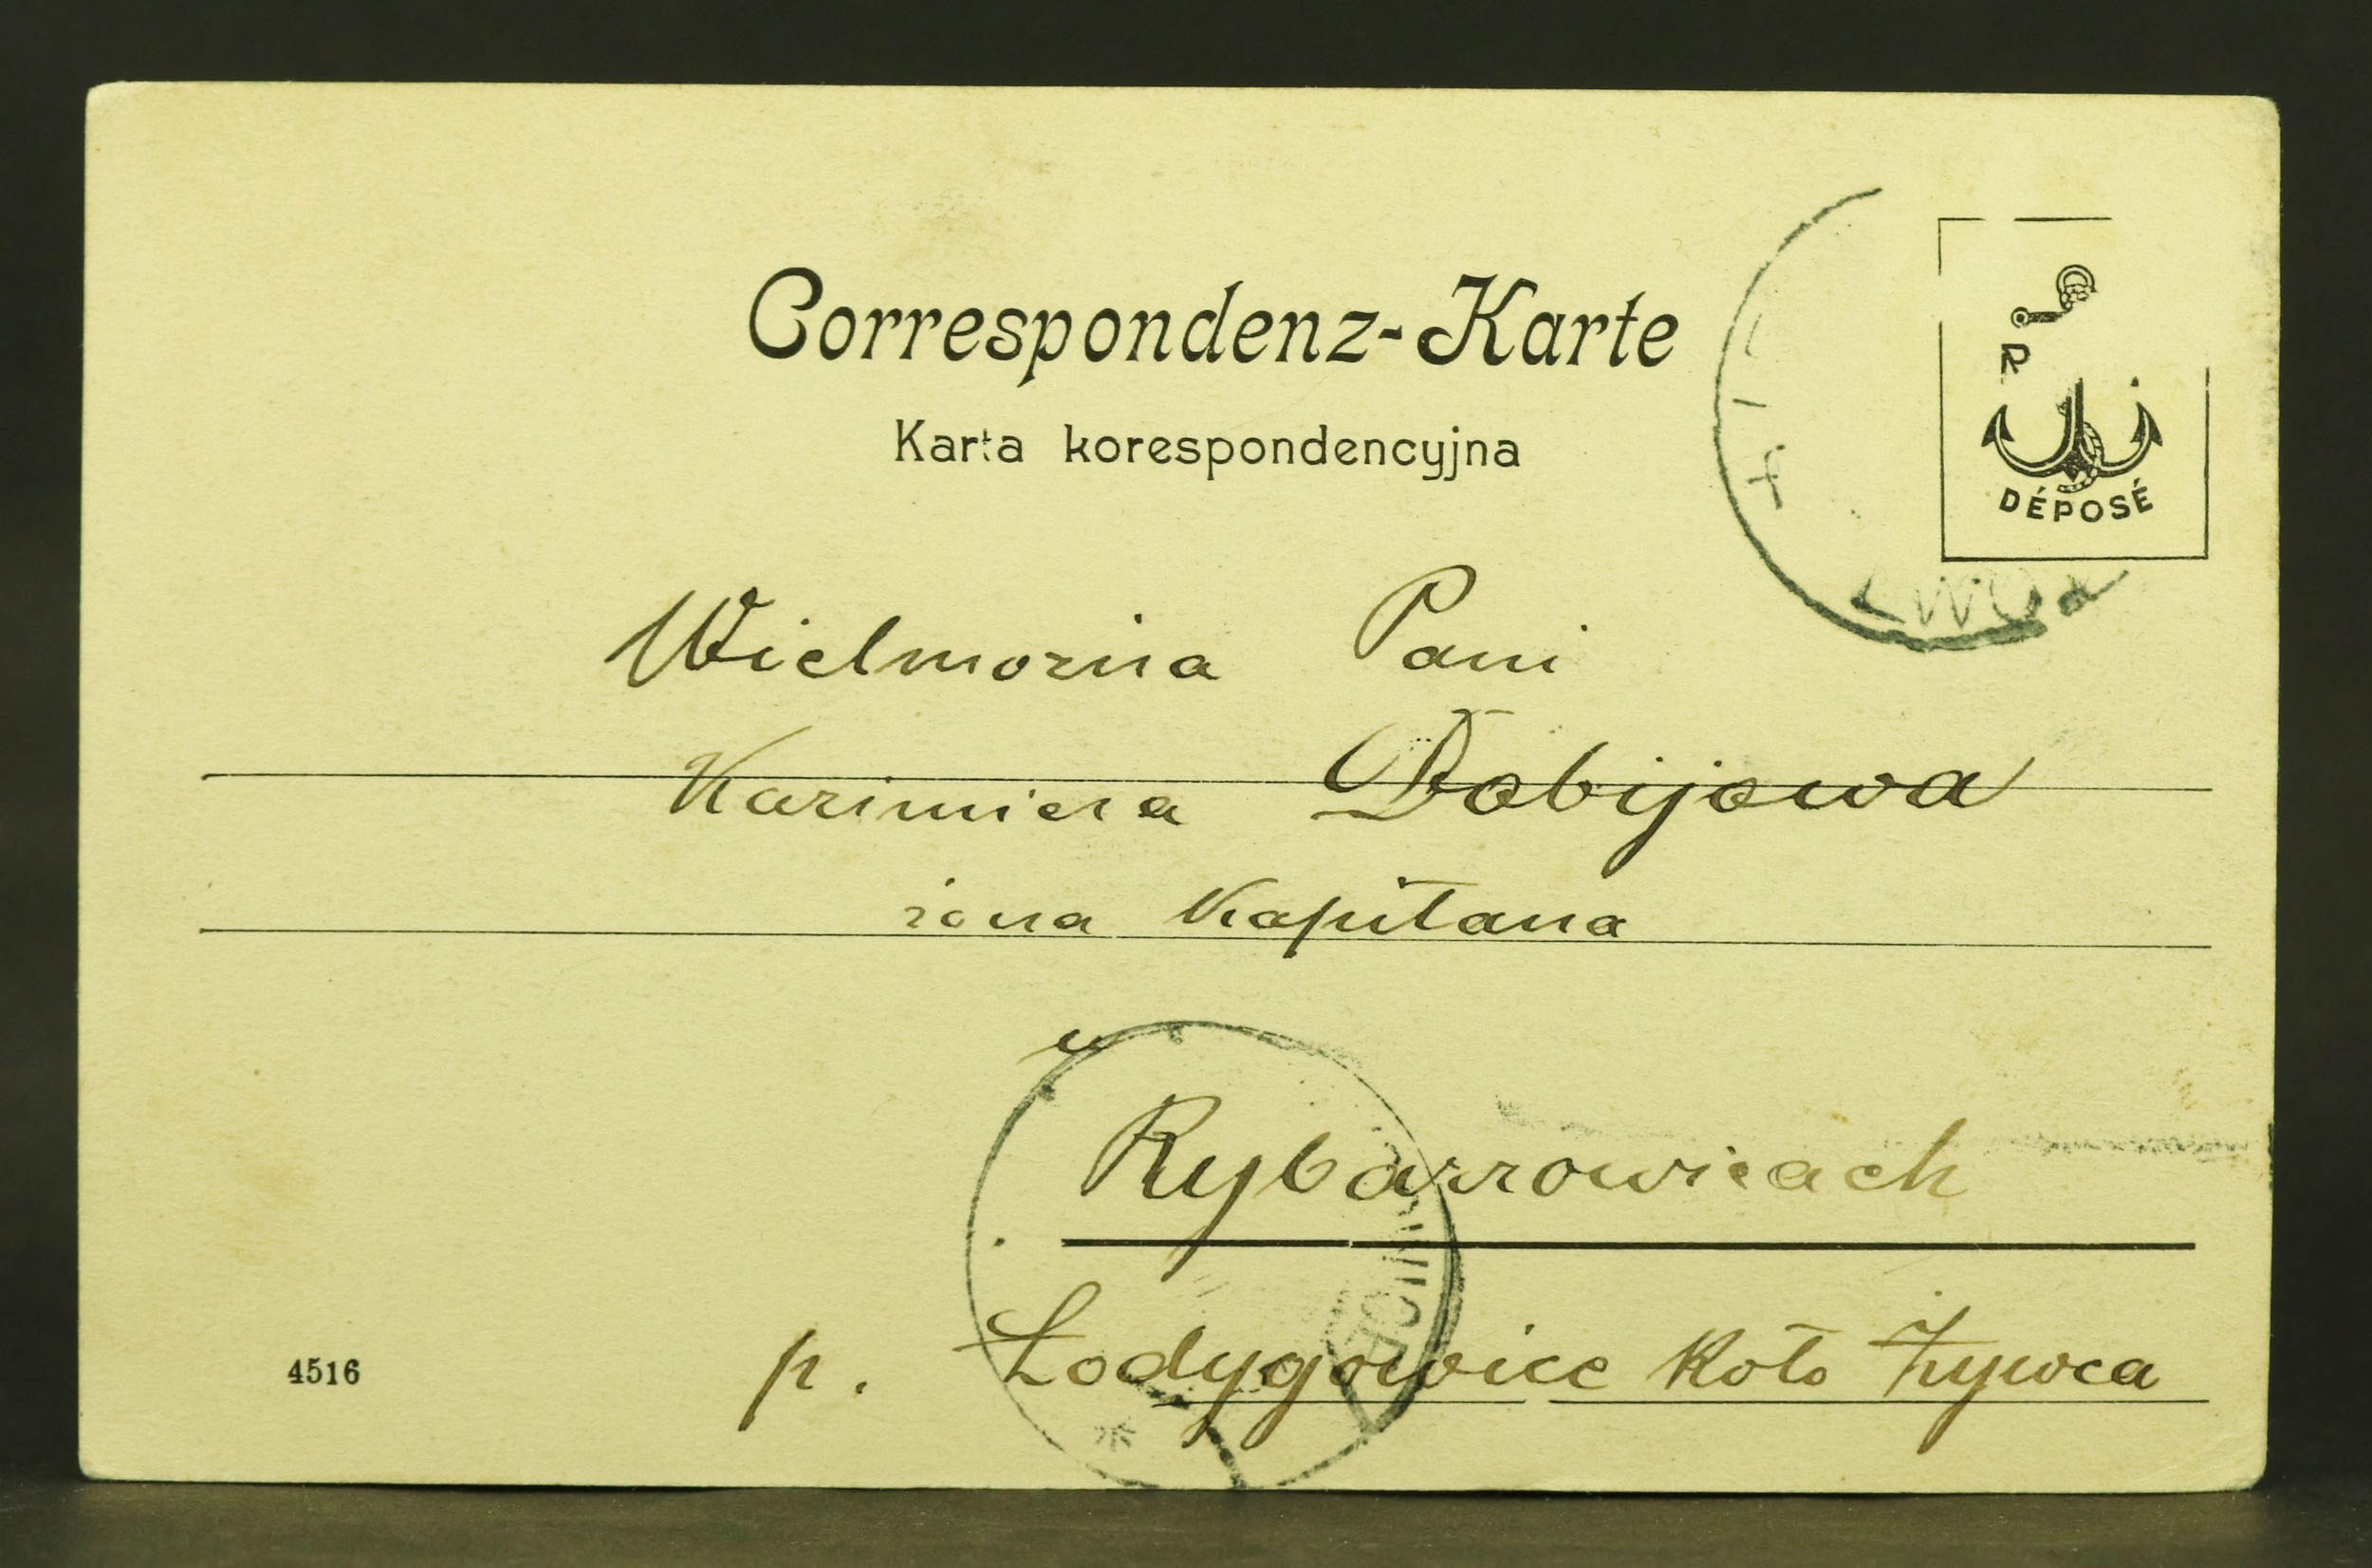 Correspondenz-Karte
Karta korespondencyjna
R
DÉPOSÉ
LWÓW
Wielmożna Pani
Kazimiera Dobijowa
żona Kapitana
w
Rybarzowicach
p. Łodygowice koło Żywca
4516